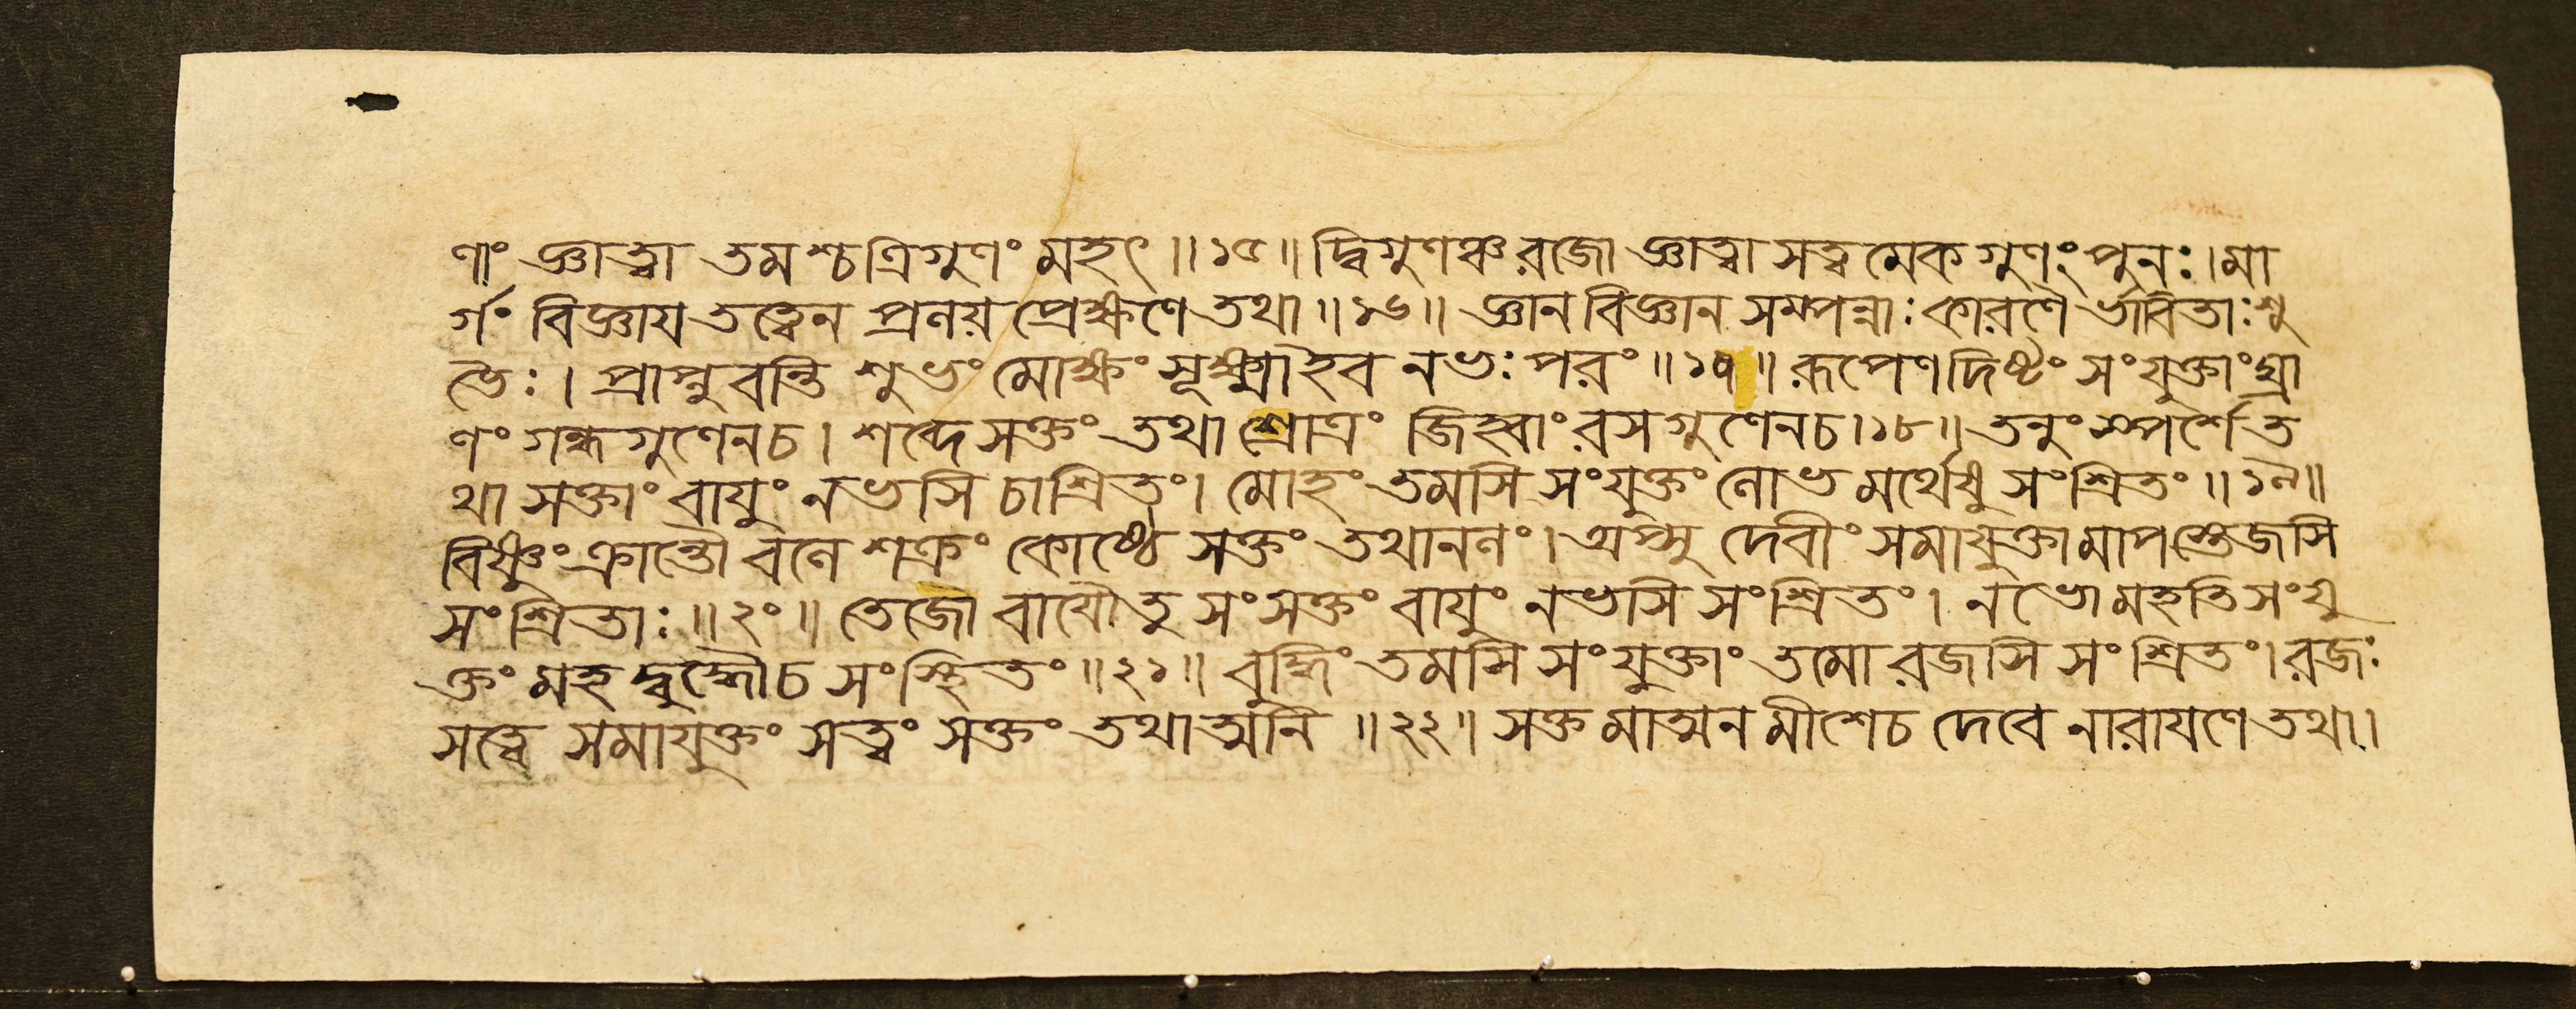 ণাং জ্ঞাত্বা তমশ্চত্রিগুণং মহৎ ॥১৫॥ দ্বিগুণঞ্চ রজো জ্ঞাত্বা সত্ত্বমেকগুণং পুনঃ। মা
র্গং বিজ্ঞায তত্ত্বেন প্রনয় প্রেক্ষণে তথা ॥১৬॥ জ্ঞান বিজ্ঞান সম্পন্নাঃ কারণৈ র্ভাবিতাঃ শু
ভৈঃ। প্রাপ্নুবন্তি শুভং মোক্ষং সূক্ষ্মাইব নভঃ পরং ॥১৭॥ রূপেণ দিষ্টং সংযুক্তাং ঘ্রা
ণং গন্ধগুণেনচ। শব্দে সক্তং তথা শ্রোত্রং জিহ্বাং রসগুণেনচ।১৮॥ তনুং স্পর্শে ত
থা সক্তাং বাযুং নভসি চাশ্রিতং। মোহং তমসি সংযুক্তং লোভ মর্থেষু সংশ্রিতং ॥১৯॥
বিষ্ণুং ক্রান্তৌ বলে শক্রং কোষ্ঠে সক্তং তথানলং। অপ্সু দেবীং সমাযুক্তামাপস্তেজসি
সংশ্রিতাঃ ॥২০॥ তেজো বাযৌতু সংসক্তং বাযুং নভসি সংশ্রিতং। নভো মহতি সংযু
ক্তং মহদ্বুদ্ধৌচ সংস্থিতং ॥২১॥ বুদ্ধিং তমসি সংযুক্তাং তমো রজসি সংশ্রিতং। রজঃ
সত্ত্বে সমাযুক্তং সত্ত্বং সক্তং তথাত্মনি ॥২২॥ সক্তমাত্মনমীশেচ দেবে নারাযণে তথা।